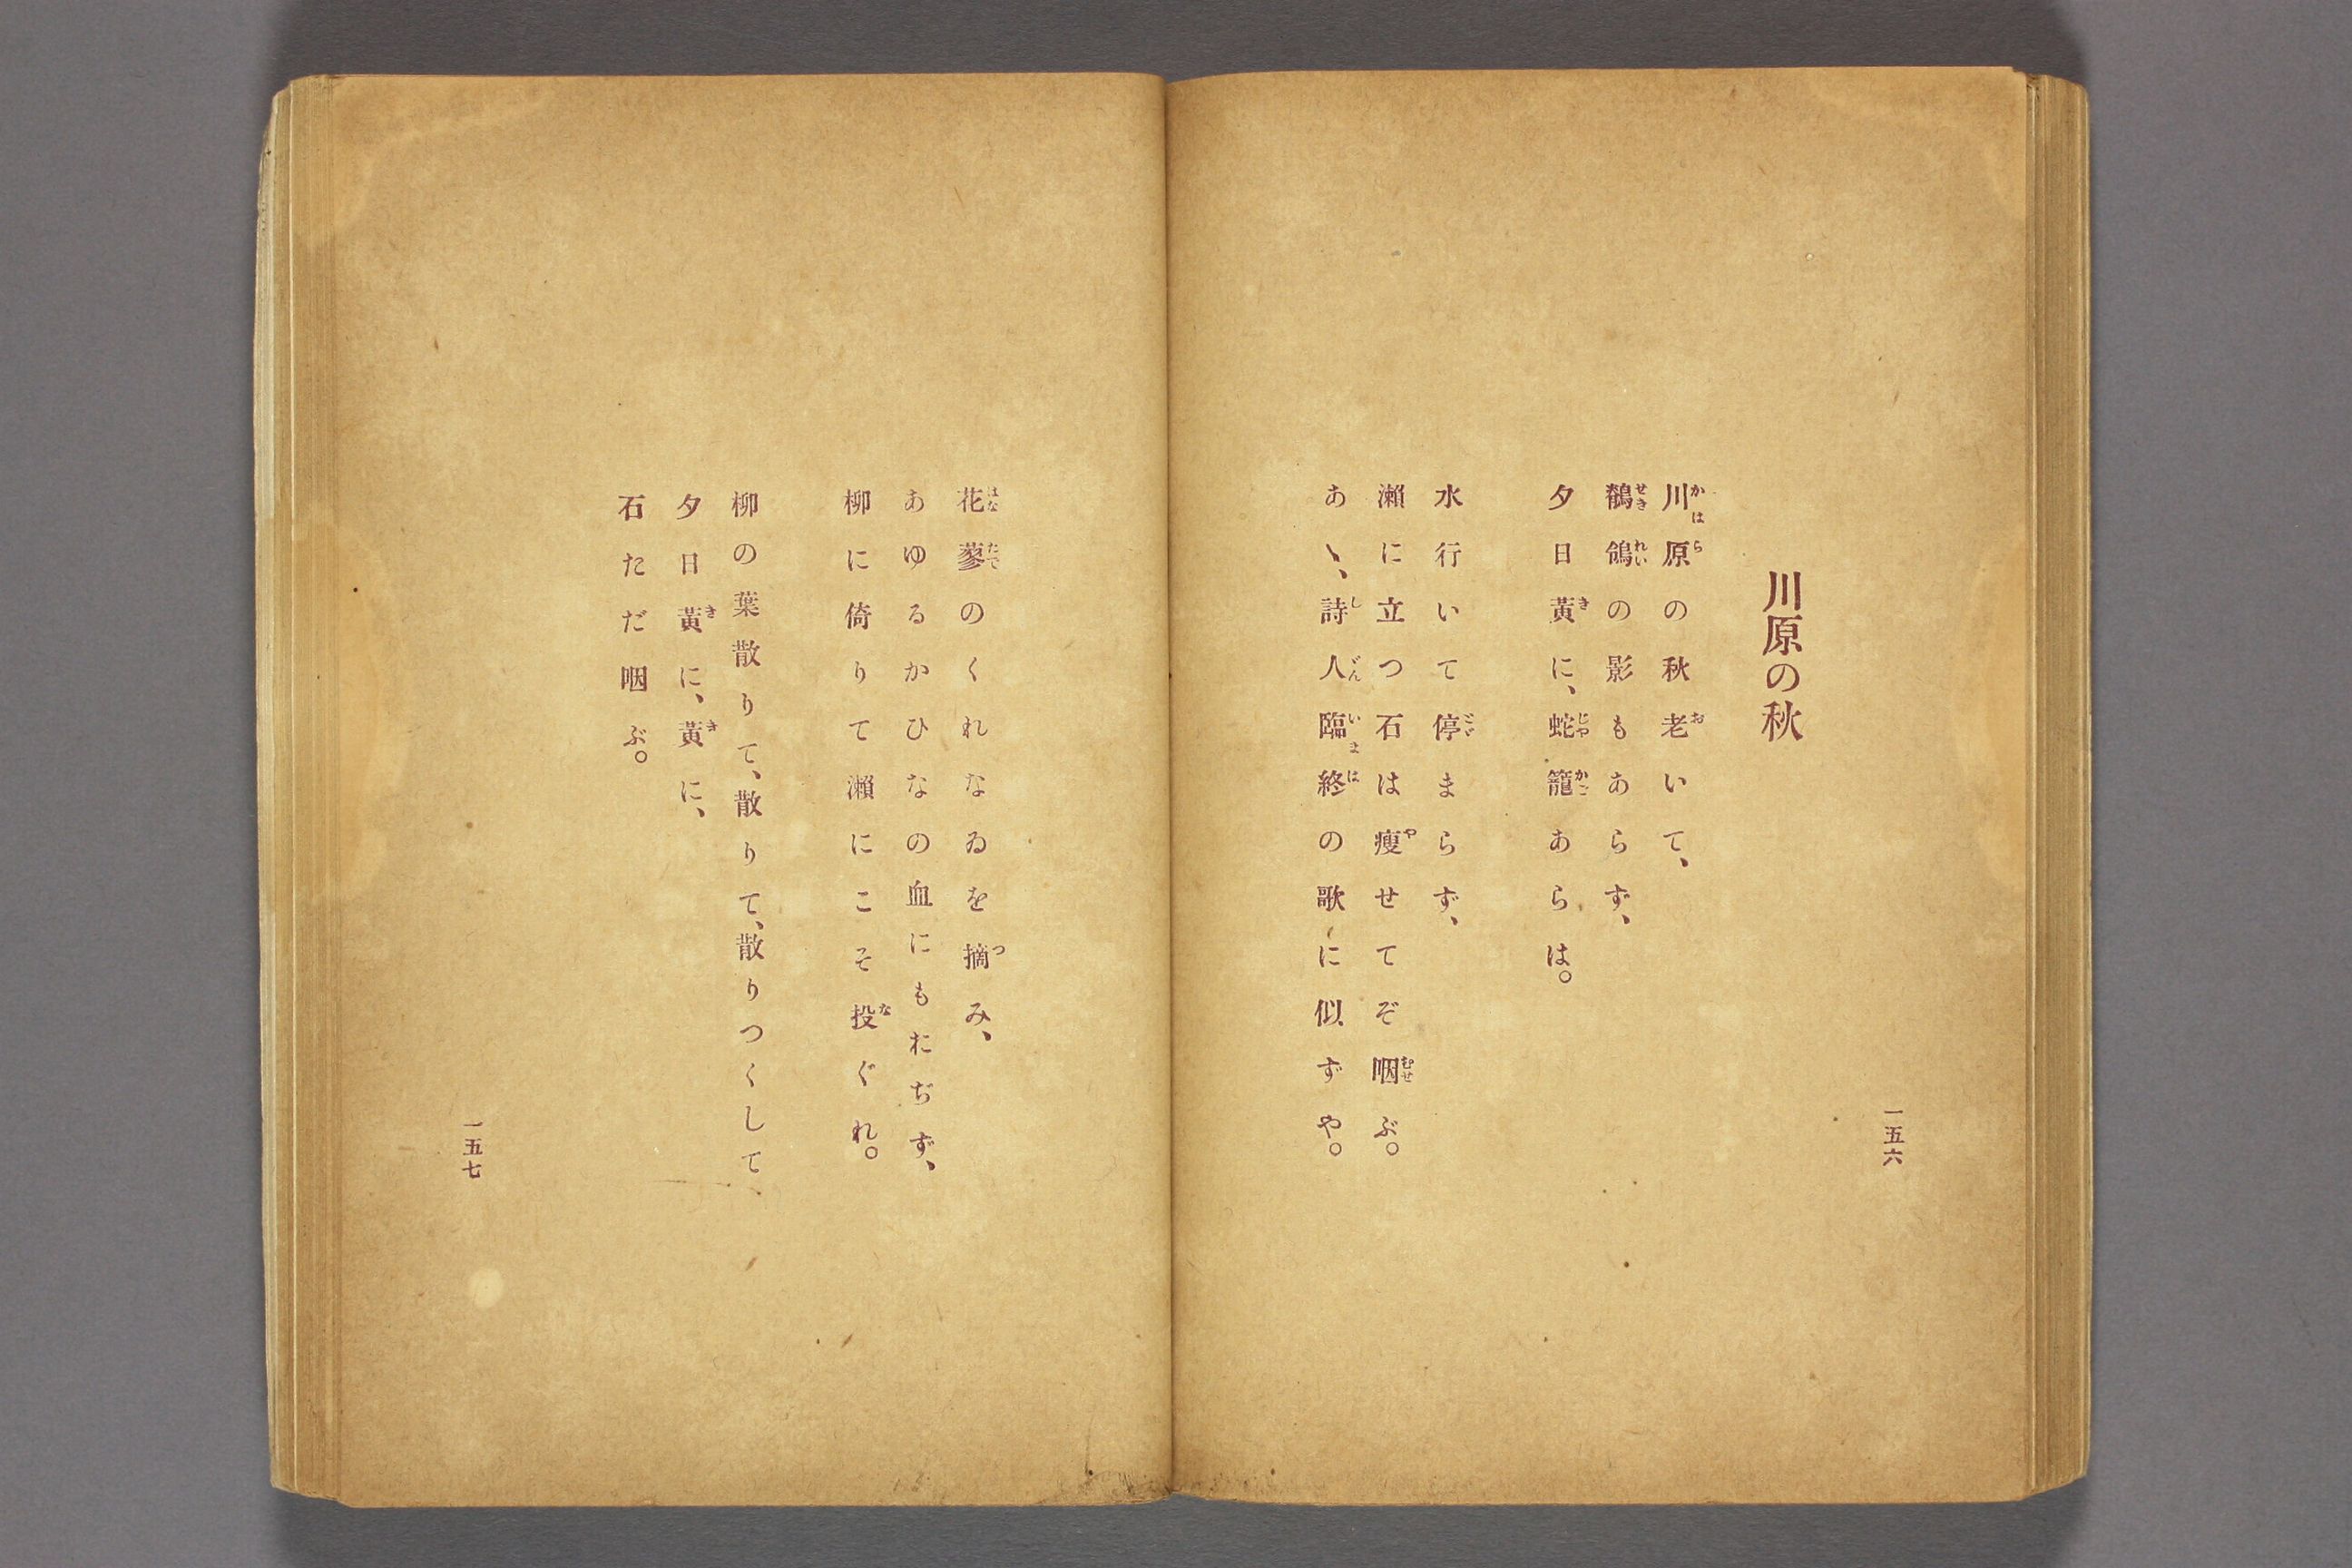 一五六
川原の秋
川原の秋老いて、
鶺鴒の影もあらず、
夕日黃に、蛇籠あらは。
水行いて停まらず、
瀨に立つ石は瘦せてぞ咽ぶ。
あゝ、詩人臨終の歌に似ずや。
花蓼のくれなゐを摘み、
あゆるかひなの血にもおぢず、
柳に倚りて瀨にこそ投ぐれ。
柳の葉散りて、散りて、散りつくして、
夕日黃に、黃に、
石ただ咽ぶ。
一五七